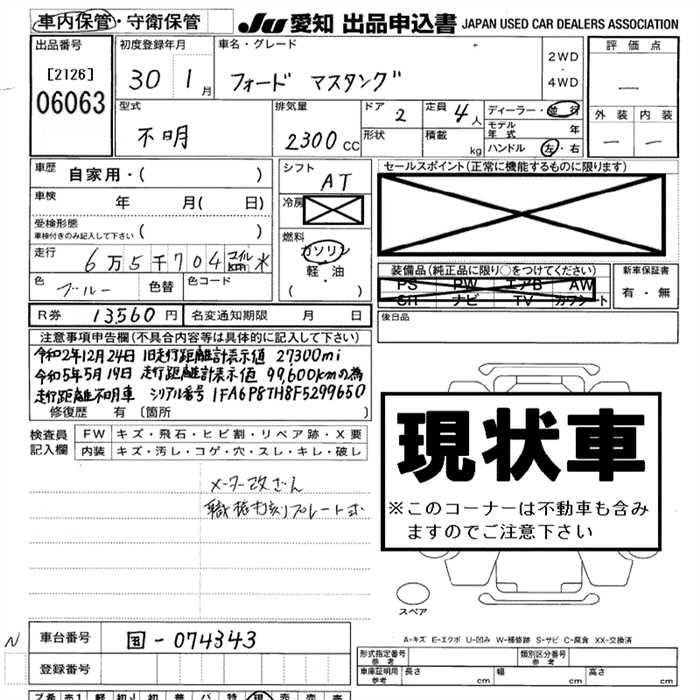 車内保管・守衛保管 JU 愛知 出品申込書 JAPAN USED CAR DEALERS ASSOCIATION
出品番号 初度登録年月 車名・グレード 評価点
[2126]
06063
30 1月 フォード マスタング 2WD・4WD —
型式 排気量 ドア 2 定員 4人 ディーラー・並行 外装 内装
不明 2300cc 形状 積載 kg モデル年式 年 — —
ハンドル 左・右
車歴 自家用・( ) シフト AT セールスポイント(正常に機能するものに限ります)
車検 年 月( 日) 冷房
受検形態 ( )
車検付きのみ記入して下さい
燃料
ガソリン
軽・油
( ・ )
走行 6万5千704 マイル km 装備品(純正品に限り○をつけてください) 新車保証書
PS PW エアB AW
SH ナビ TV カワシート
有・無
色 ブルー 色替 色コード
R券 13,560円 名変通知期限 月 日 後日品
注意事項申告欄(不具合内容等は具体的に記入して下さい)
令和2年12月24日 旧走行距離計表示値 27300mi
令和5年5月19日 走行距離計表示値 99,600kmの為
走行距離不明車 シリアル番号 1FA6P8TH8F5299650
修復歴 有 〔箇所 〕
検査員記入欄 FW キズ・飛石・ヒビ割・リペア跡・X要
内装 キズ・汚レ・コゲ・穴・スレ・キレ・破レ
メーター改ざん
職権打刻プレート式
現状車
※このコーナーは不動車も含み
ますのでご注意下さい
スペア
A-キズ E-エクボ U-凹み W-補修跡 S-サビ C-腐食 XX-交換済
N 車台番号 国-074343
登録番号
形式指定番号 参考 類別区分番号 参考
車庫証明用 参考 長さ cm 幅 cm 高さ cm